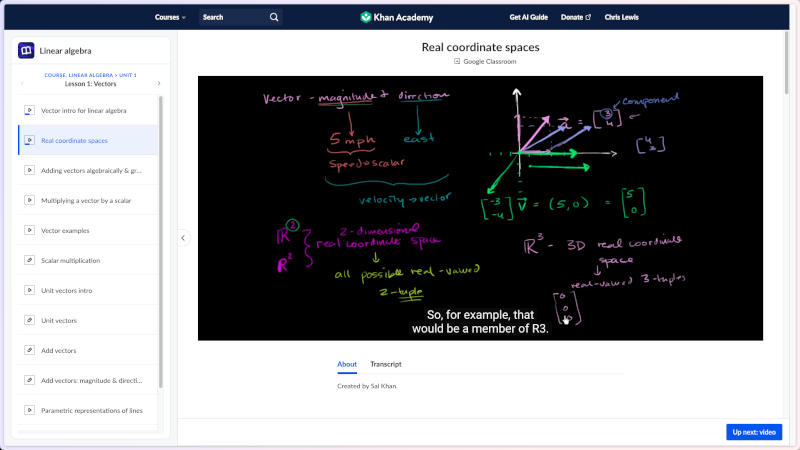 Courses
Search
Khan Academy
Get AI Guide
Donate
Chris Lewis
Linear algebra
COURSE: LINEAR ALGEBRA > UNIT 1
Lesson 1: Vectors
Vector intro for linear algebra
Real coordinate spaces
Adding vectors algebraically & gr...
Multiplying a vector by a scalar
Vector examples
Scalar multiplication
Unit vectors intro
Unit vectors
Add vectors
Add vectors: magnitude & directi...
Parametric representations of lines
Real coordinate spaces
Google Classroom
Vector - magnitude & direction
5 mph east
speed → scalar
velocity → vector
component
a = [3 4]
[4 3]
[-3 -4] v = (5, 0) = [5 0]
ℝ² 2-dimensional
R² real coordinate space
all possible real-valued
2-tuple
ℝ³ - 3D real coordinate
space
real-valued 3-tuples
So, for example, that
would be a member of R3.
About
Transcript
Created by Sal Khan.
Up next: video